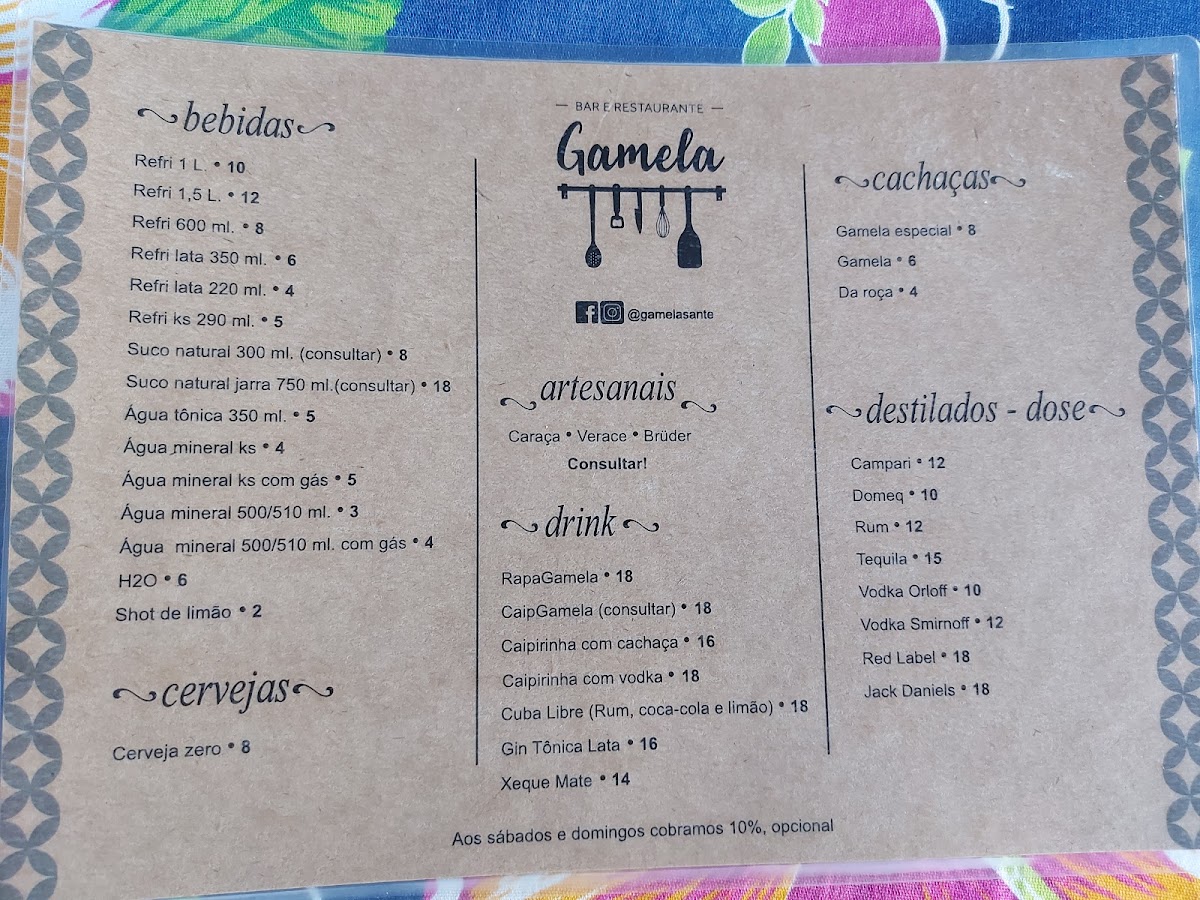 bebidas
Refri 1 L. • 10
Refri 1,5 L. • 12
Refri 600 ml. • 8
Refri lata 350 ml. • 6
Refri lata 220 ml. • 4
Refri ks 290 ml. • 5
Suco natural 300 ml. (consultar) • 8
Suco natural jarra 750 ml.(consultar) • 18
Água tônica 350 ml. • 5
Água mineral ks • 4
Água mineral ks com gás • 5
Água mineral 500/510 ml. • 3
Água mineral 500/510 ml. com gás • 4
H2O • 6
Shot de limão • 2
cervejas
Cerveja zero • 8
BAR E RESTAURANTE
Gamela
@gamelasante
artesanais
Caraça • Verace • Brüder
Consultar!
drink
RapaGamela • 18
CaipGamela (consultar) • 18
Caipirinha com cachaça • 16
Caipirinha com vodka • 18
Cuba Libre (Rum, coca-cola e limão) • 18
Gin Tônica Lata • 16
Xeque Mate • 14
cachaças
Gamela especial • 8
Gamela • 6
Da roça • 4
destilados - dose
Campari • 12
Domeq • 10
Rum • 12
Tequila • 15
Vodka Orloff • 10
Vodka Smirnoff • 12
Red Label • 18
Jack Daniels • 18
Aos sábados e domingos cobramos 10%, opcional